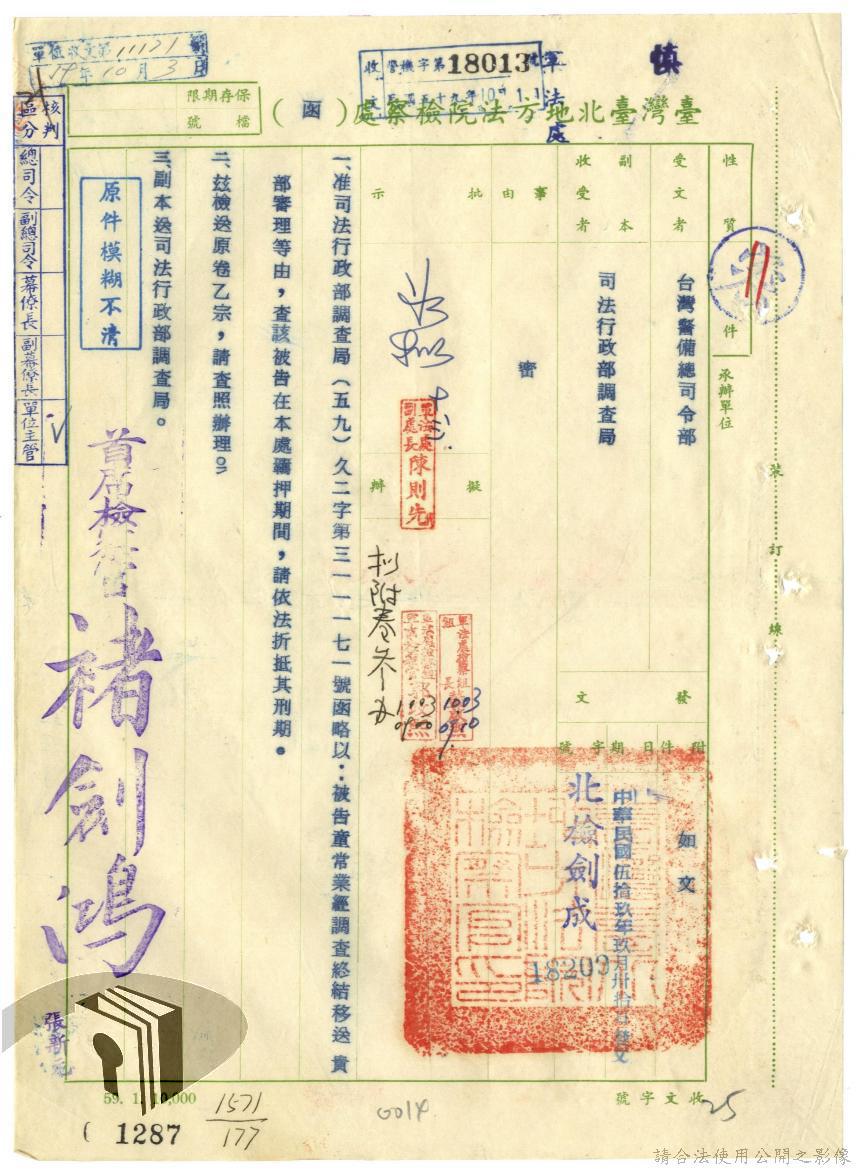 慎
單位收文第11121號
59年10月3日
收文 警機字第18013號
民國五十九年10月1日
軍法處
保存期限
檔號
臺灣臺北地方法院檢察處(函)
性質
件
承辦單位
受文者
台灣警備總司令部
副本收受者
司法行政部調查局
事由
密
批示
擬辦
軍法處副處長陳則先
擬附卷參辦
1003
0900
1003
0900
發文
附件
如文
日期
中華民國伍拾玖年玖月卅拾日發文
字號
北檢劍成
18209
一、准司法行政部調查局(五九)久二字第三一一一七一號函略以:被告童常業經調查終結移送 貴
部審理等由,查該被告在本處羈押期間,請依法折抵其刑期。
二、玆檢送原卷乙宗,請查照辦理。
三、副本送司法行政部調查局。
原件模糊不清
核判區分
總司令
副總司令
幕僚長
副幕僚長
單位主管
首席檢察官 褚劍鴻
張新
裝訂線
59. 1. 10,000
1571
177
( 1287
0014
收文字號
25
請合法使用公開之影像